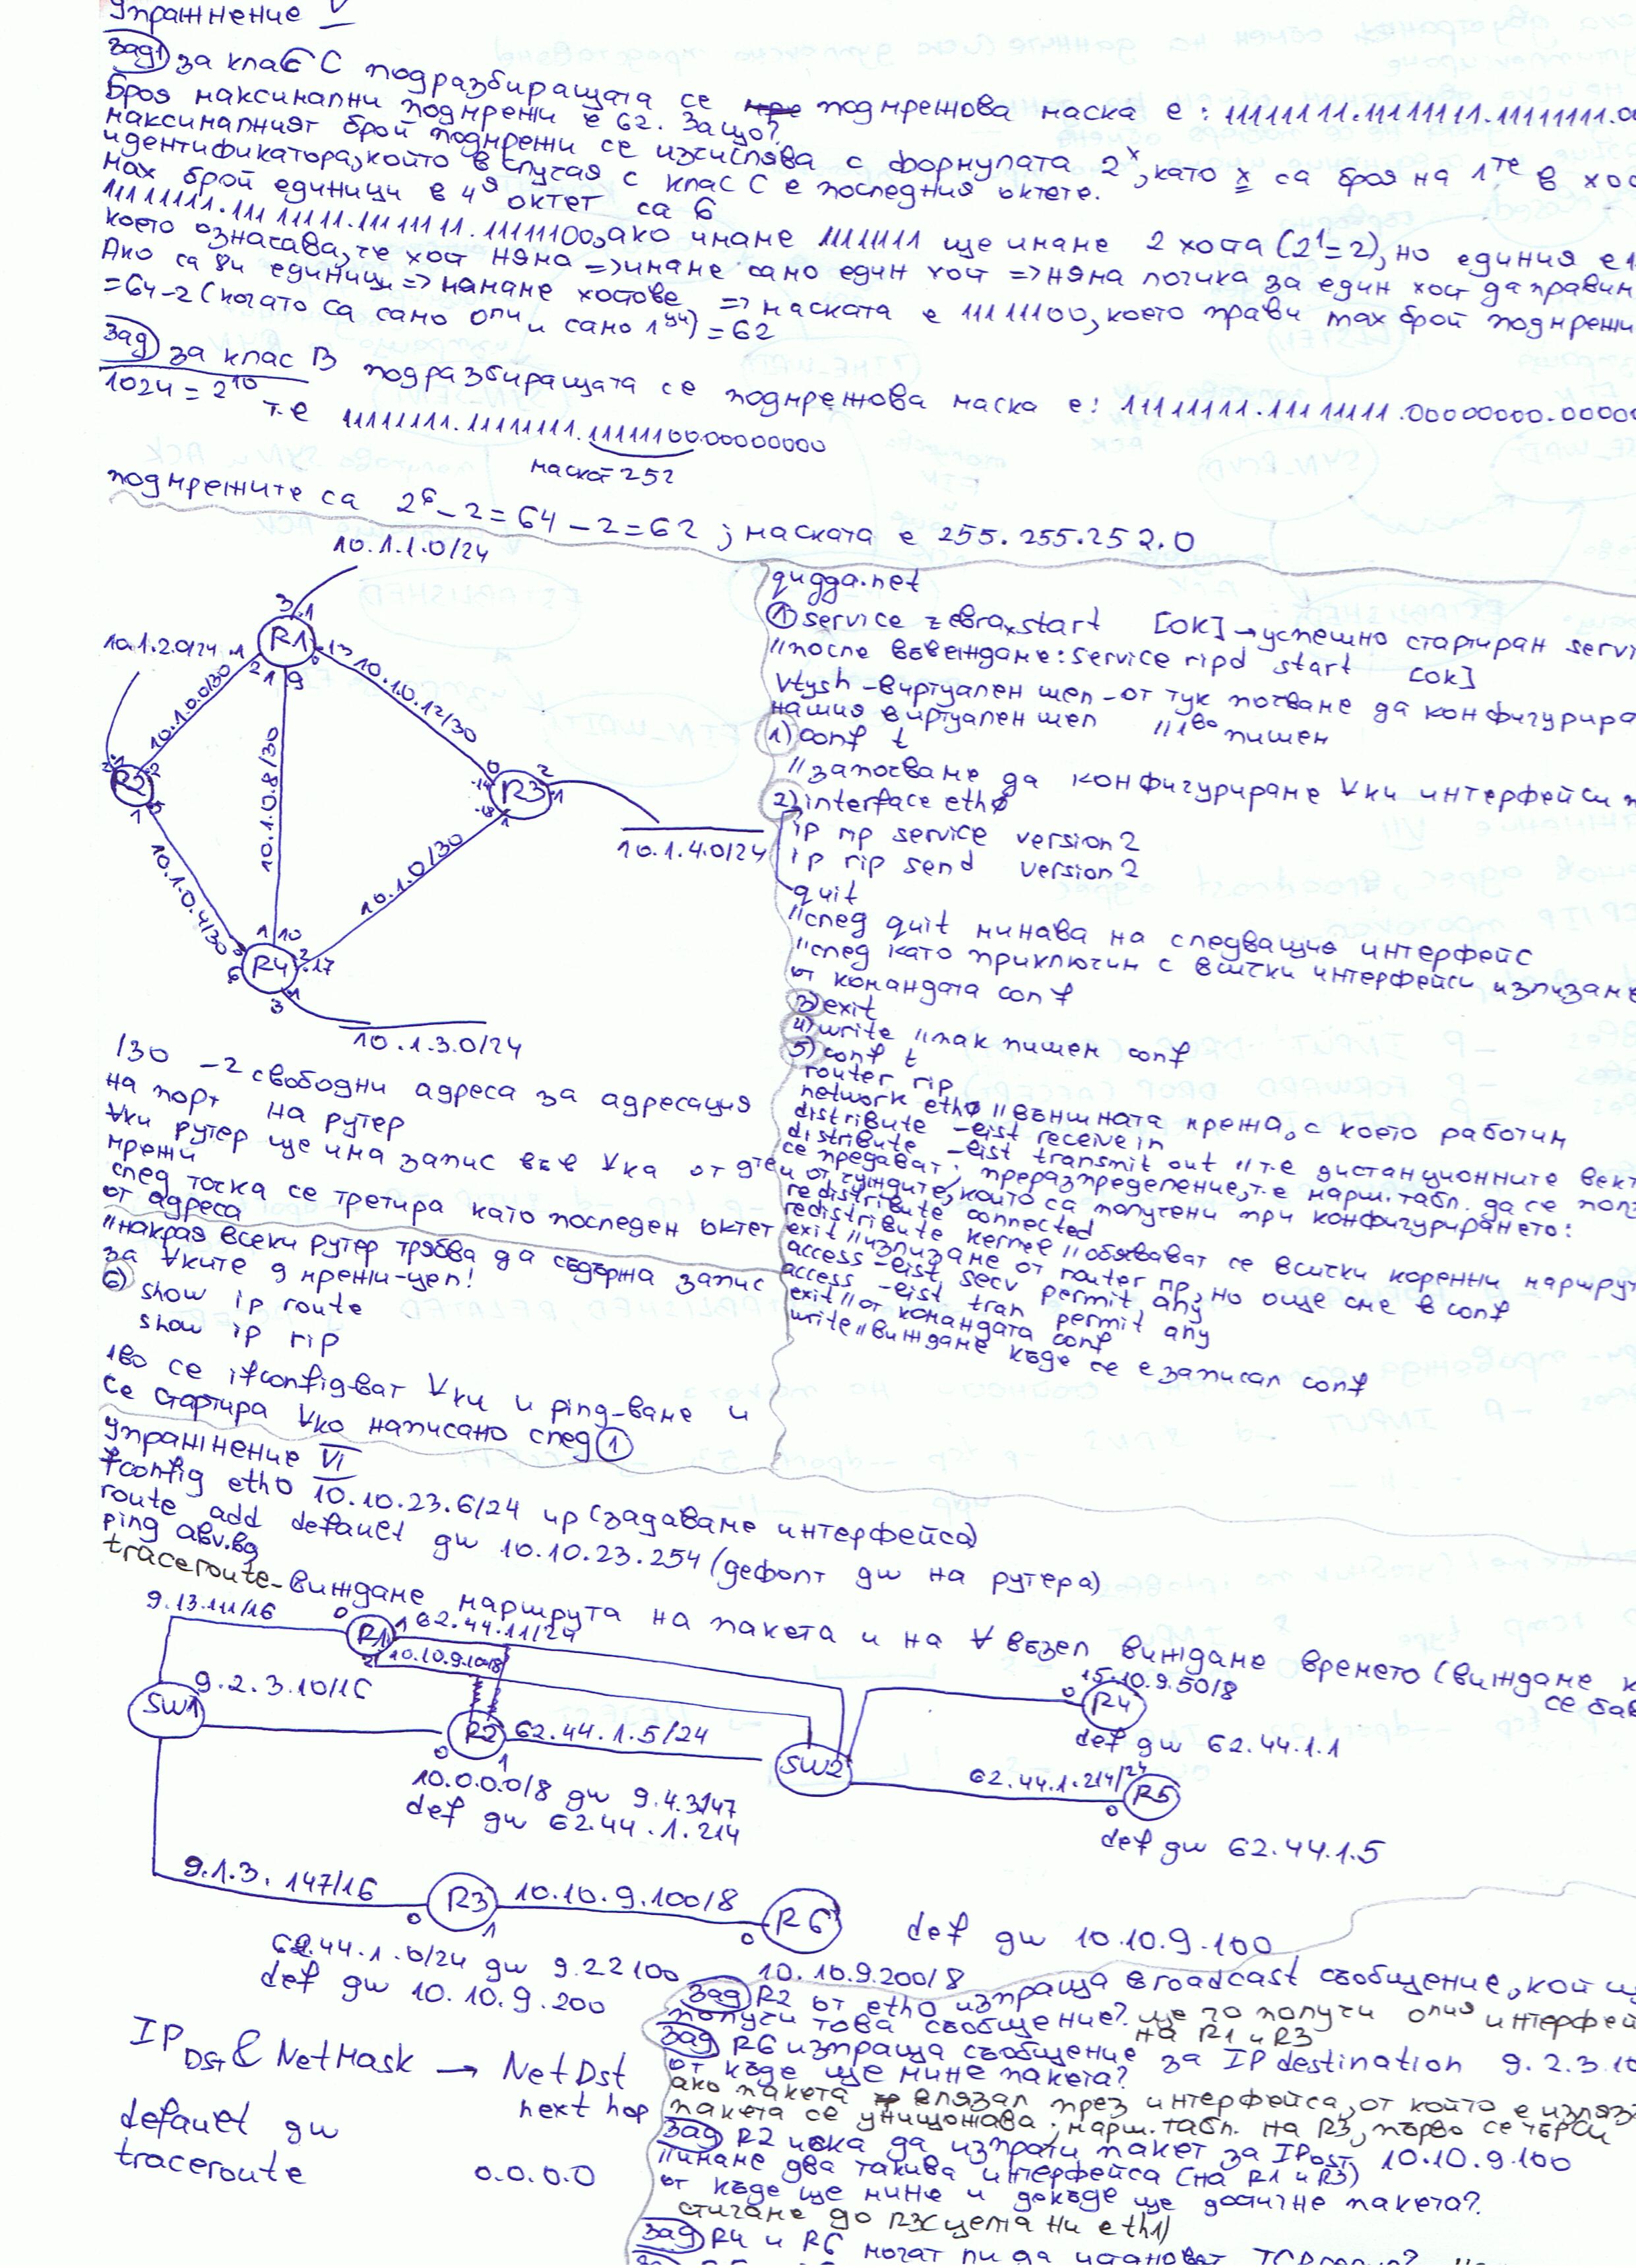 Упражнение V
Зад1 за клас C подразбиращата се подмрежова маска е: 11111111.11111111.11111111.00
Броя максимални подмрежи е 62. Защо?
максималният брой подмрежи се изчислява с формулата 2^x, като x са броя на 1те в хос
идентификатора, който в случая с клас C е последния октете.
мах брой единици в 4я октет са 6
11111111.11111111.11111111.11111100, ако имаме 1111111 ще имаме 2 хоста (2^1=2), но единия е
което означава, че хост няма => имаме само един хост => няма логика за един хост да правим
Ако са 8ки единици => нямаме хостове => маската е 11111100, което прави max брой подмрежи
=64-2 (когато са само 0ли и само 1ци) = 62
Зад за клас B подразбиращата се подмрежова маска е: 11111111.11111111.00000000.00000
1024 = 2^10 т.е 11111111.11111111.11111100.00000000
маска=252
подмрежите са 2^6-2=64-2=62 ; маската е 255.255.252.0
10.1.1.0/24
3 .1
R1
10.1.2.0/24
.1
2
1
.9
.13
0
10.1.0.0/30
10.1.0.12/30
10.1.0.8/30
R2
R3
0
2
.14
.1
1
10.1.4.0/24
10.1.0.4/30
10.1.0/30
1
10
R4
2
.17
6
3
.1
10.1.3.0/24
/30 -2 свободни адреса за адресация
на порт на рутер
∀ки рутер ще има запис във ∀ка от 9те
мрежи
след точка се третира като последен октет
от адреса
//накрая всеки рутер трябва да съдържа запис
за ∀ките 9 мрежи-цел!
6) show ip route
show ip rip
1во се ifconfig-ват ∀ки и ping-ване и
се стартира ∀ко написано след 1
qugga.net
1 service zebra start [ok] → успешно стартиран servi
//после въвеждаме: service ripd start [ok]
vtysh - виртуален шел - от тук почваме да конфигурира
нашия виртуален шел //1во пишем
1) conf t
//започваме да конфигурираме ∀ки интерфейси
2) interface eth0
ip rip service version 2
ip rip send version 2
quit
//след quit минава на следващия интерфейс
//след като приключим с всички интерфейси излизаме
от командата conf
3) exit
4) write //пак пишем conf
5) conf t
router rip
network eth0 //външната мрежа, с което работим
distribute -list receive in
distribute -list transmit out //т.е дистанционните вект
се предават; преразпределение, т.е марш.табл. да се пол
и от чуждите, които са получени при конфигурирането:
redistribute connected
redistribute kernel //обявават се всички коренни маршру
exit //излизане от router rip, но още сме в conf
access -list secv permit any
access -list tran permit any
exit //от командата conf
write //виждаме къде се е записал conf
Упражнение VI
fconfig eth0 10.10.23.6/24 up (задаваме интерфейса)
route add default gw 10.10.23.254 (дефолт gw на рутера)
ping abv.bg
traceroute-виждаме маршрута на пакета и на ∀ възел виждаме времето (виждаме к
се бав
9.13.111/16
0
R1
1
62.44.11/24
2
10.10.9.10/8
SW1
9.2.3.10/16
R2
62.44.1.5/24
0
1
10.0.0.0/8 gw 9.4.3147
def gw 62.44.1.214
SW2
15.10.9.50/8
0
R4
def gw 62.44.1.1
62.44.1.214/24
0
R5
def gw 62.44.1.5
9.1.3.147/16
0
R3
1
10.10.9.100/8
0
R6
def gw 10.10.9.100
10.10.9.200/8
62.44.1.0/24 gw 9.22100
def gw 10.10.9.200
IP Dst & NetMask → NetDst
next hop
default gw
traceroute 0.0.0.0
Зад R2 от eth0 изпраща broadcast съобщение, кой щ
получи това съобщение? ще го получи 0лия интерфей
на R1 и R3
Зад R6 изпраща съобщение за IP destination 9.2.3.10
от къде ще мине пакета?
ако пакета влязал през интерфейса, от който е изляз
пакета се унищожава; марш.табл. на R3, първо се търси
Зад R2 иска да изпрати пакет за IP Dst 10.10.9.100
//имаме два такива интерфейса (на R1 и R3)
от къде ще мине и докъде ще достигне пакета?
стигаме до R3 (целта ни eth1)
Зад R4 и R6 могат ли да